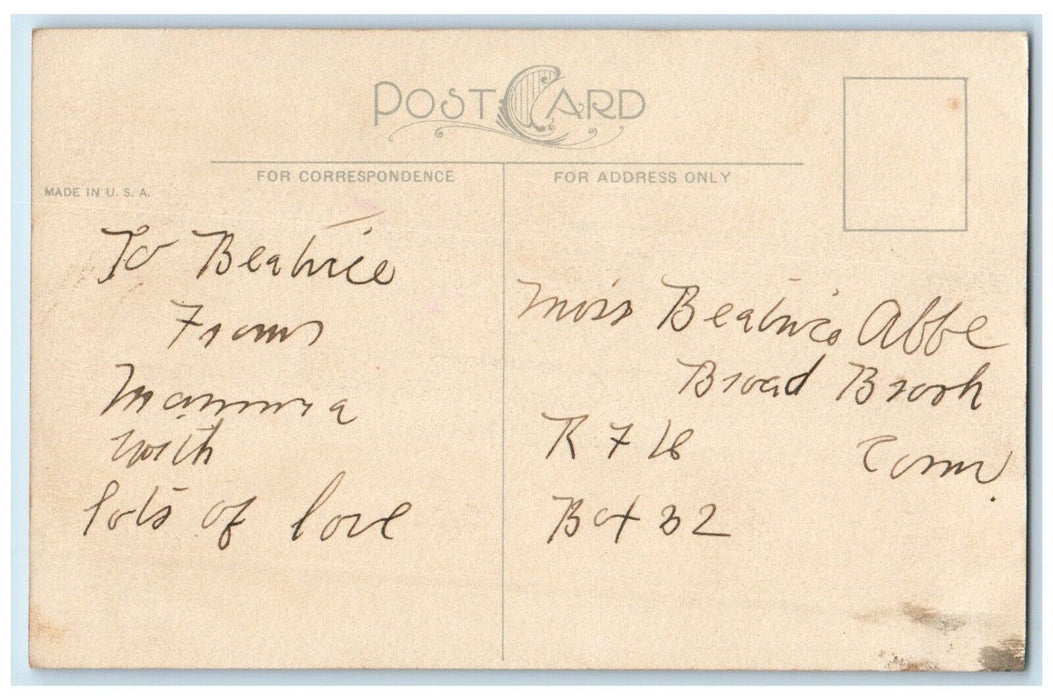 POST CARD
FOR CORRESPONDENCE
FOR ADDRESS ONLY
MADE IN U. S. A.
To Beatrice
From
Mamma
with
lots of love
Miss Beatrice Abbe
Broad Brook
R F D
Conn.
Box 32